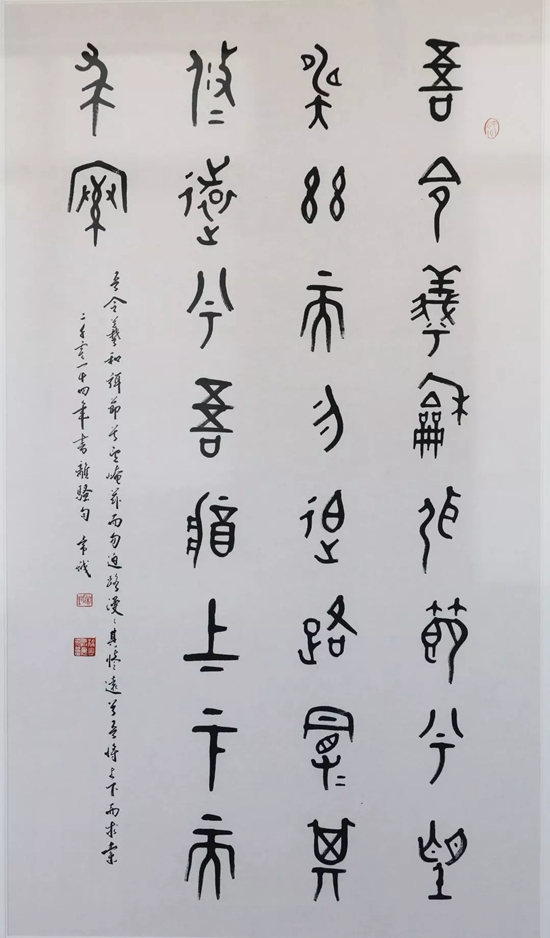 吾令羲和弭節兮望
奄兹而勿迫路曼〻其
修〻遠兮吾將上下而
求索
吾令羲和弭節兮望崦兹而勿迫路漫〻其修遠兮吾將上下而求索
二千零一十四年書離騷句